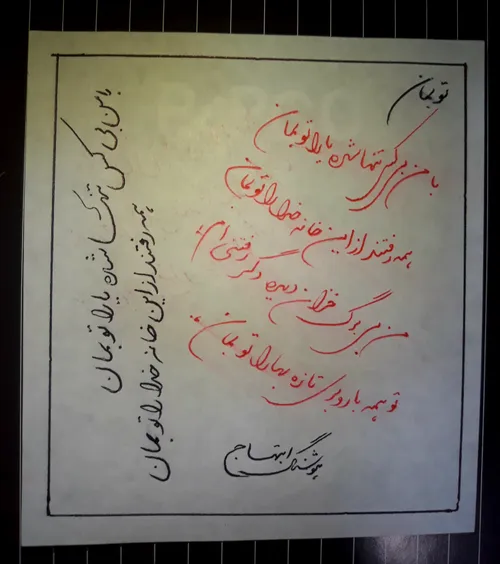 تو بمان
با من بی کس تنها شده یارا تو بمان
همه رفتند از این خانه خدا را تو بمان
من بی برگ خزان دیده دگر رفتنی ام
تو همه بار و بری تازه بهارا تو بمان
هوشنگ ابتهاج
با من بی کس تنها شده یارا تو بمان
همه رفتند از این خانه خدا را تو بمان